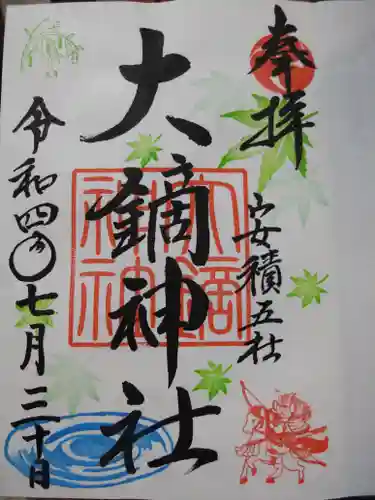 奉拝
安積五社
大鏑神社
令和四年七月三十日